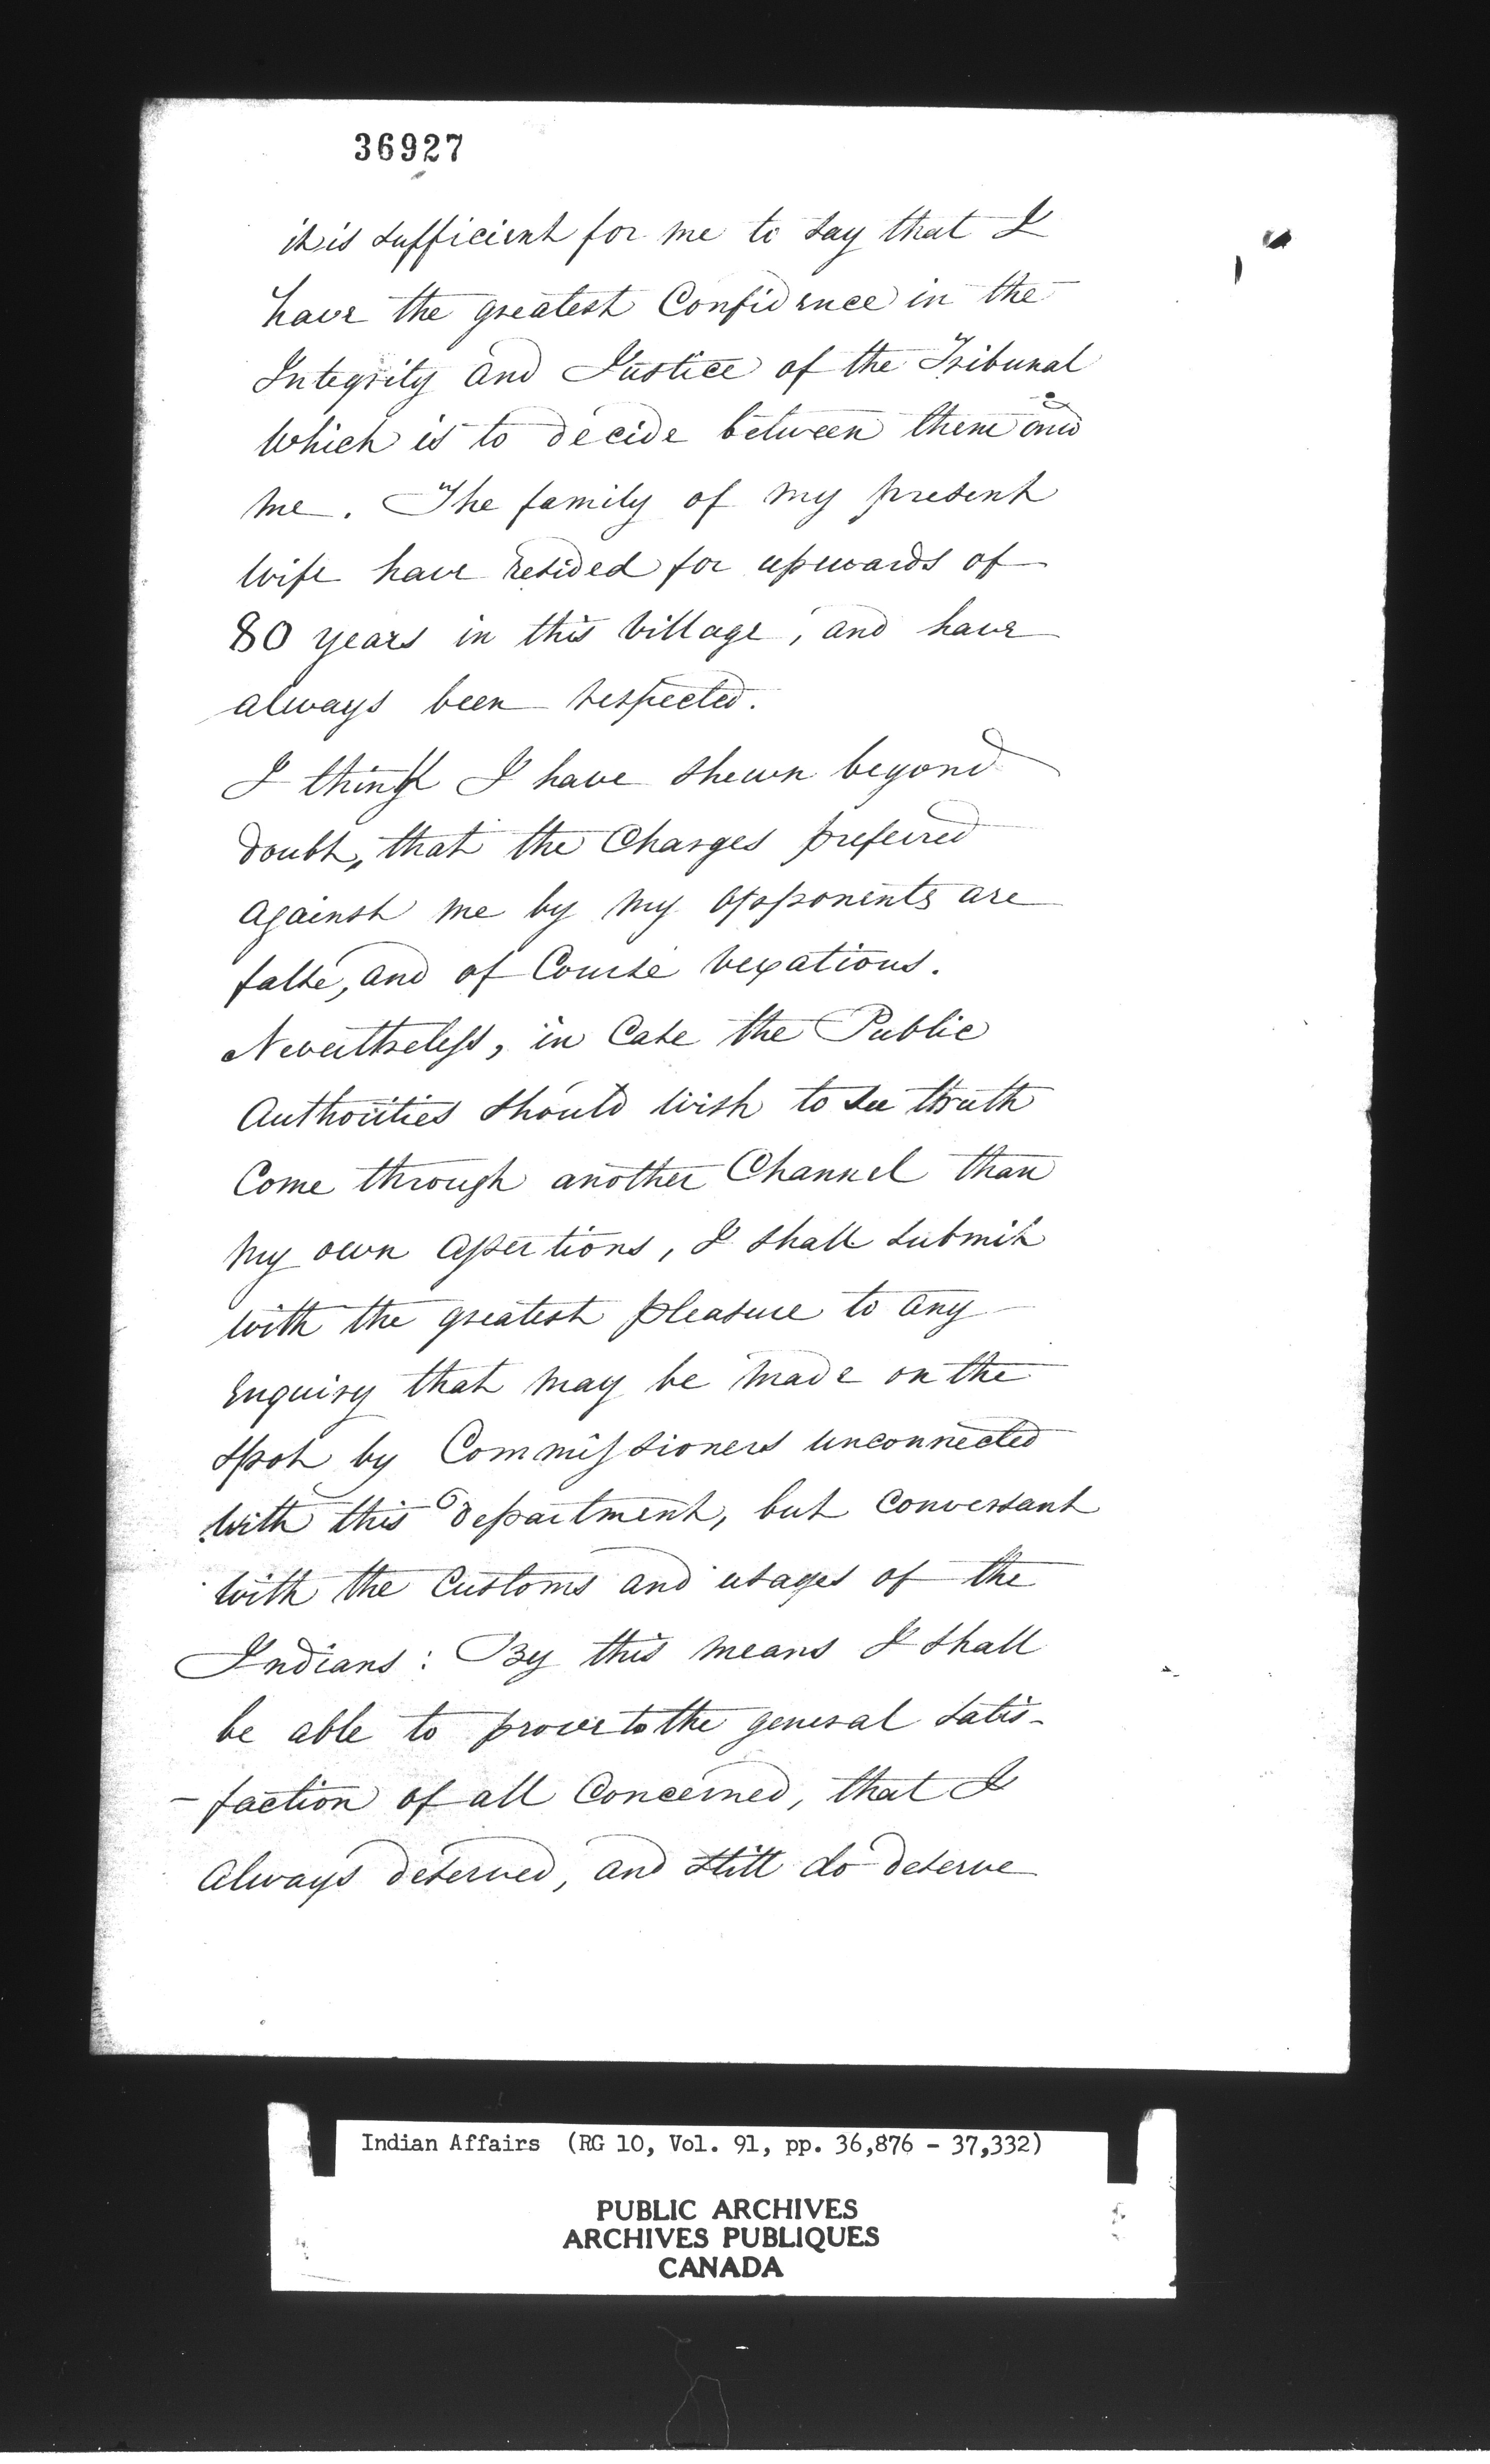 36927
it is sufficient for me to say that I
have the greatest Confidence in the
Integrity and Justice of the Tribunal
which is to decide between them and
me. The family of my present
wife have resided for upwards of
80 years in this village, and have
always been respected.
I think I have shewn beyond
doubt, that the Charges preferred
against me by my opponents are
false, and of Course vexatious.
Nevertheless, in Case the Public
Authorities should wish to see truth
Come through another Channel than
my own assertions, I shall submit
with the greatest pleasure to any
Enquiry that may be made on the
spot by Commissioners unconnected
with this department, but Conversant
with the Customs and usages of the
Indians: By this means I shall
be able to prove to the general satis-
-faction of all Concerned, that I
always deserved, and still do deserve
Indian Affairs (RG 10, Vol. 91, pp. 36,876 - 37,332)
PUBLIC ARCHIVES
ARCHIVES PUBLIQUES
CANADA